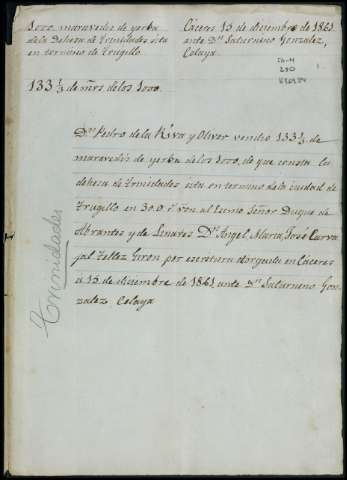 1000 maravedis de yerba
de la Dehesa de Trinidades sita
en termino de Trugillo.
133⅓ de mrs. de los 1000.
Cáceres 15 de diciembre de 1861
ante Dn. Saturnino Gonzalez,
Celaya.
Dn. Pedro de la Riva y Oliver vendio 133⅓ de
maravedis de yerba de los 1000, de que consta la
dehesa de Trinidades sita en termino de la ciudad de
Trugillo en 30.0 von. al Escmo Señor Duque de
Abrantes y de Linares Dn. Angel, Maria, José Carva
jal Tellez Giron por escritura otorgada en Cáceres
a 15 de diciembre de 1861 ante Dn. Saturnino Gon-
zalez Celaya
Trinidades